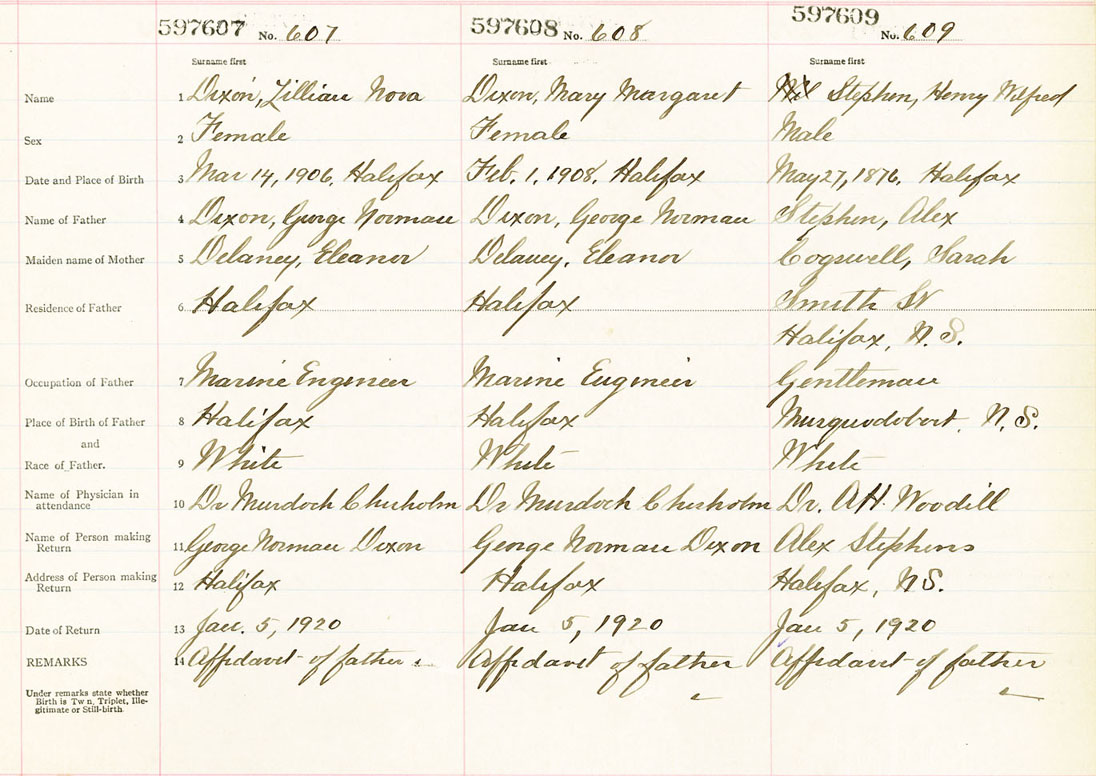 597607 No. 607 597608 No. 608 597609 No. 609
Surname first Surname first Surname first
Name 1 Dixon, Lillian Nova Dixon, Mary Margaret Stephen, Henry Wilfred
Sex 2 Female Female Male
Date and Place of Birth 3 Mar 14, 1906, Halifax Feb. 1, 1908, Halifax May 27, 1876, Halifax
Name of Father 4 Dixon, George Norman Dixon, George Norman Stephen, Alex
Maiden name of Mother 5 Delaney, Eleanor Delaney, Eleanor Cogswell, Sarah
Residence of Father 6 Halifax Halifax Smith St
Halifax, N.S.
Occupation of Father 7 Marine Engineer Marine Engineer Gentleman
Place of Birth of Father 8 Halifax Halifax Musquodoboit, N.S.
and
Race of Father. 9 White White White
Name of Physician in
attendance 10 Dr Murdoch Chisholm Dr Murdoch Chisholm Dr. A.H. Woodill
Name of Person making
Return 11 George Norman Dixon George Norman Dixon Alex Stephens
Address of Person making
Return 12 Halifax Halifax Halifax, N.S.
Date of Return 13 Jan. 5, 1920 Jan 5, 1920 Jan 5, 1920
REMARKS 14 Affidavit of father. Affidavit of father Affidavit of father
Under remarks state whether
Birth is Twn, Triplet, Ille-
gitimate or Still-birth.